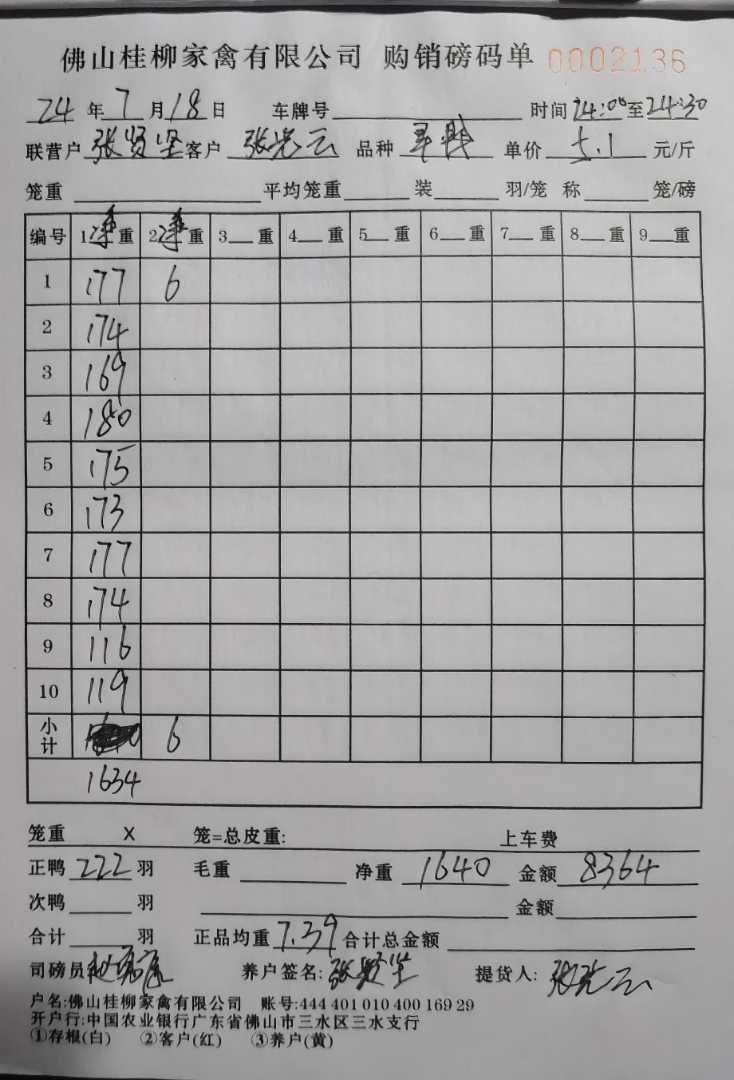 佛山桂柳家禽有限公司 购销磅码单 0002136
24 年 7 月 18 日 车牌号 时间 24:00 至 24:30
联营户 张贤坚 客户 张光云 品种 单价 5.1 元/斤
笼重 平均笼重 装 羽/笼 称 笼/磅
编号 1净重 2净重 3 重 4 重 5 重 6 重 7 重 8 重 9 重
1 177 6
2 174
3 169
4 180
5 175
6 173
7 177
8 174
9 116
10 119
小计 6
1634
笼重 X 笼=总皮重: 上车费
正鸭 222 羽 毛重 净重 1640 金额 8364
次鸭 羽 金额
合计 羽 正品均重 7.39 合计总金额
司磅员: 养户签名: 张贤坚 提货人: 张光云
户名:佛山桂柳家禽有限公司 账号:444 401 010 400 169 29
开户行:中国农业银行广东省佛山市三水区三水支行
①存根(白) ②客户(红) ③养户(黄)